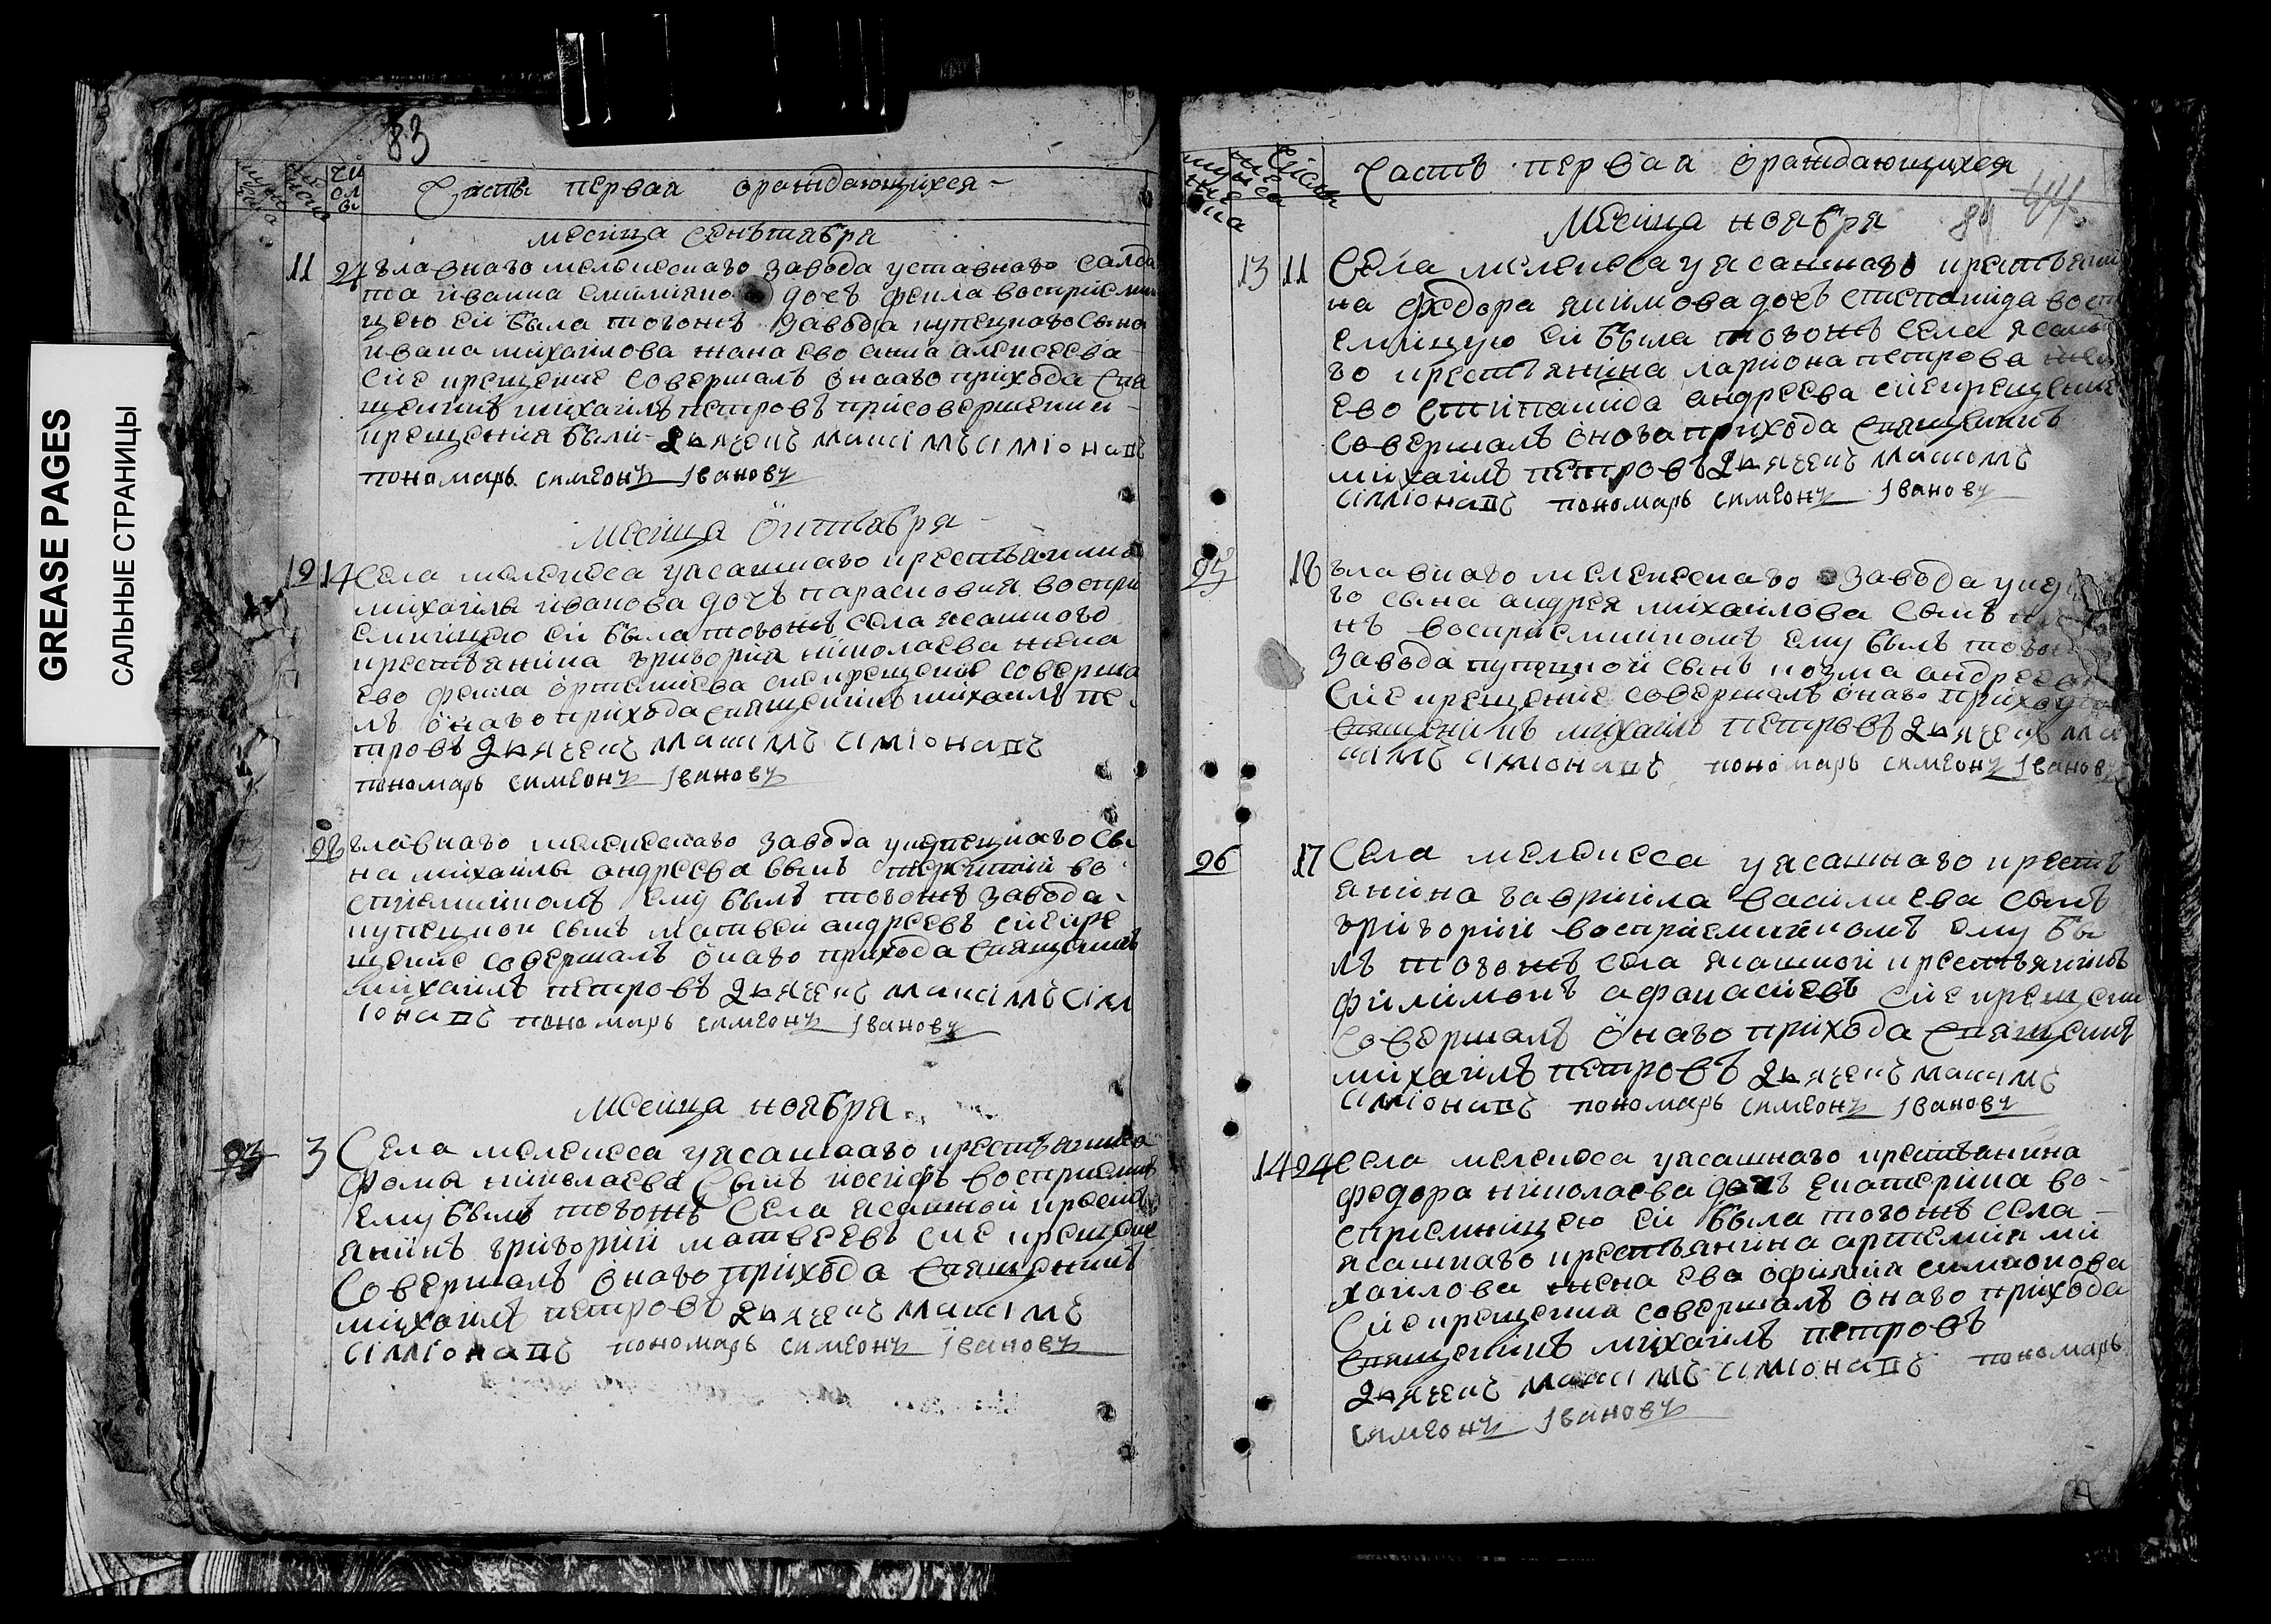 GREASE PAGES
САЛЬНЫЕ СТРАНИЦЫ
83
Часть первая ораждающихся
месеца сентября
11 24 главнаго мелекескаго завода уставнаго салда
та ивана емилияно дочь фекла восприемни
цею ей была тогожъ завода купецкаго сына
ивана михаилова жана ево анна алексеева
сие крещение совершалъ онаго прихода свя
щенникъ михаилъ петровъ присовершении
крещения были дьячекъ максімъ сімионапъ
пономарь симеонъ Iвановъ
месеца октября
12 14 Села мелекеса уясашнаго крестьянина
михаила иванова дочь парасковия воспри
емницею ей была тогожъ села ясашного
крестьянина григория николаева жена
ево фекла ортемиева сие крещение соверша
лъ онаго прихода священникъ михаилъ пе
тровъ дьячекъ максімъ сімионапъ
пономарь симеонъ Iвановъ
28 главнаго мелекескаго завода укупецкаго сы
на михаила андреева сынъ терентий во
сприемникомъ ему былъ тогожъ завода
купецкой сынъ матвей андреевъ сие кре
щение совершалъ онаго прихода священникъ
михаилъ петровъ дьячекъ максімъ сім
іонапъ пономарь симеонъ Iвановъ
месеца ноября
3 Села мелекеса уясашнаго крестьянина
фомы николаева сынъ иосифъ восприемникъ
ему былъ тогожъ села ясашной кресть
янинъ григорий матвеевъ сие крещение
совершалъ онаго прихода священникъ
михаилъ петровъ дьячекъ максімъ
сімионапъ пономарь симеонъ Iвановъ
Часть первая ораждающихся
84 44
Месеца ноября
13 11 Села мелекеса уясашнаго крестьяни
на федора якимова дочь степанида воспри
емницую ей была тогожъ села ясашна
го крестьянина лариона петрова жена
ево стипанида андреева сие крещение
совершалъ онога прихода священникъ
михаилъ петровъ дьячекъ максімъ
сімионапъ пономарь симеонъ Iвановъ
25 16 главнаго мелекескаго завода
го сына андрея михаилова сынъ
нъ восприемникомъ ему былъ тогожъ
завода купецкой сынъ козма андреевъ
Сие крещение совершалъ онаго прихода
священникъ михаилъ петровъ дьячекъ мак
сімъ сімионапъ пономарь симеонъ Iвановъ
26 17 Села мелекеса уясашнаго кресть
янина гавриила василиева сынъ
григорий восприемникомъ ему бы
лъ тогожъ села ясашной крестьянинъ
филимонъ афанасиевъ сие крещени
совершалъ онаго прихода священникъ
михаилъ петровъ дьячекъ максімъ
сімионапъ пономарь симеонъ Iвановъ
14 24 села мелекеса уясашнаго крестьянина
федора николаева дочь екатерина во
сприемницею ей была тогожъ села
ясашнаго крестьянина артемия ми
хаилова жена ева офимия симионова
Сие крещения совершалъ онаго прихода
священникъ михаилъ петровъ
дьячекъ максімъ сімионапъ пономарь
симеонъ Iвановъ